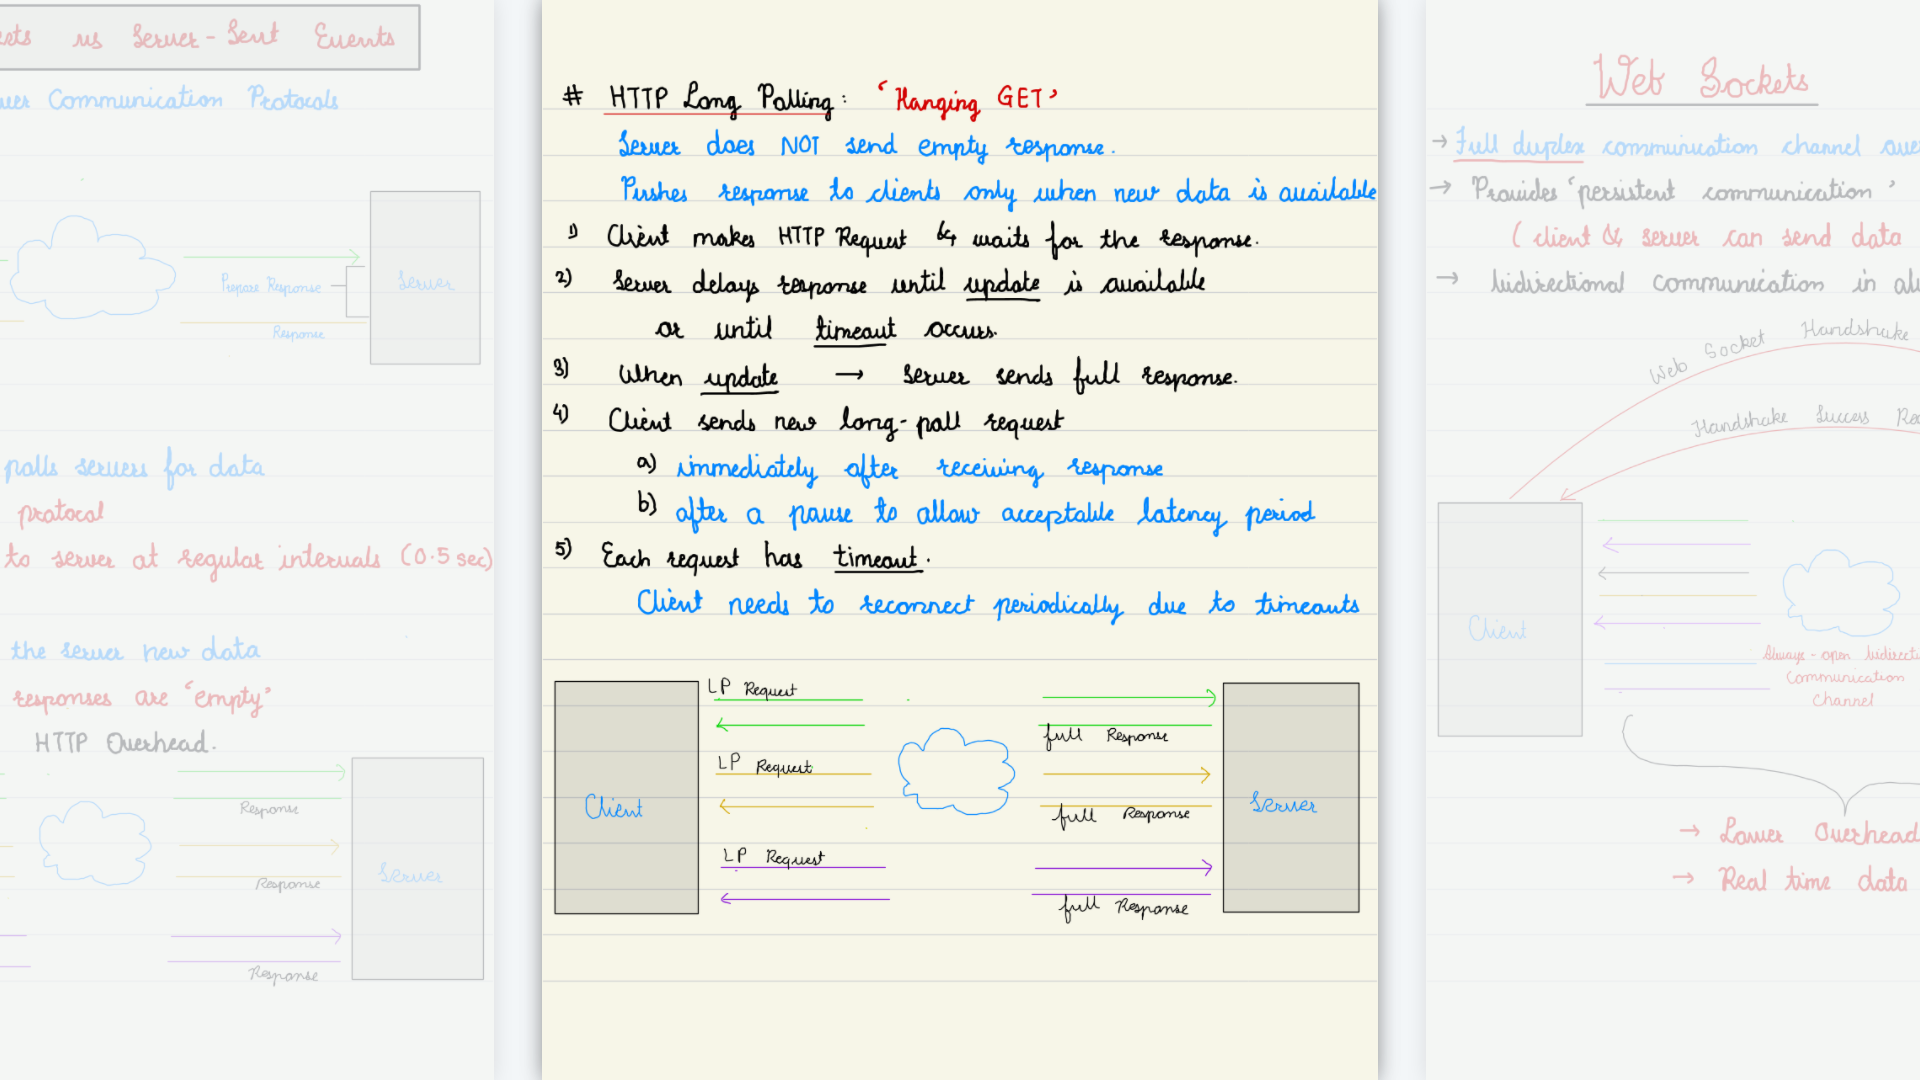 vs Server-Sent Events
Communication Protocols
Prepare Response
Server
Response
polls servers for data
protocol
to server at regular intervals (0.5 sec)
the server new data
responses are 'empty'
HTTP Overhead.
Response
Response
Server
Response
# HTTP Long Polling: 'Hanging GET'
Server does NOT send empty response.
Pushes response to clients only when new data is available
1) Client makes HTTP Request & waits for the response.
2) Server delays response until update is available
or until timeout occurs.
3) When update → Server sends full response.
4) Client sends new long-poll request
a) immediately after receiving response
b) after a pause to allow acceptable latency period
5) Each request has timeout.
Client needs to reconnect periodically due to timeouts
LP Request
full Response
LP Request
Client
Server
full Response
LP Request
full Response
Web Sockets
→ Full duplex communication channel
→ Provides 'persistent communication'
( client & server can send data
→ bidirectional communication in
Web Socket Handshake
Handshake Success
Client
Always-open
Communication
Channel
→ Lower Overhead
→ Real time data